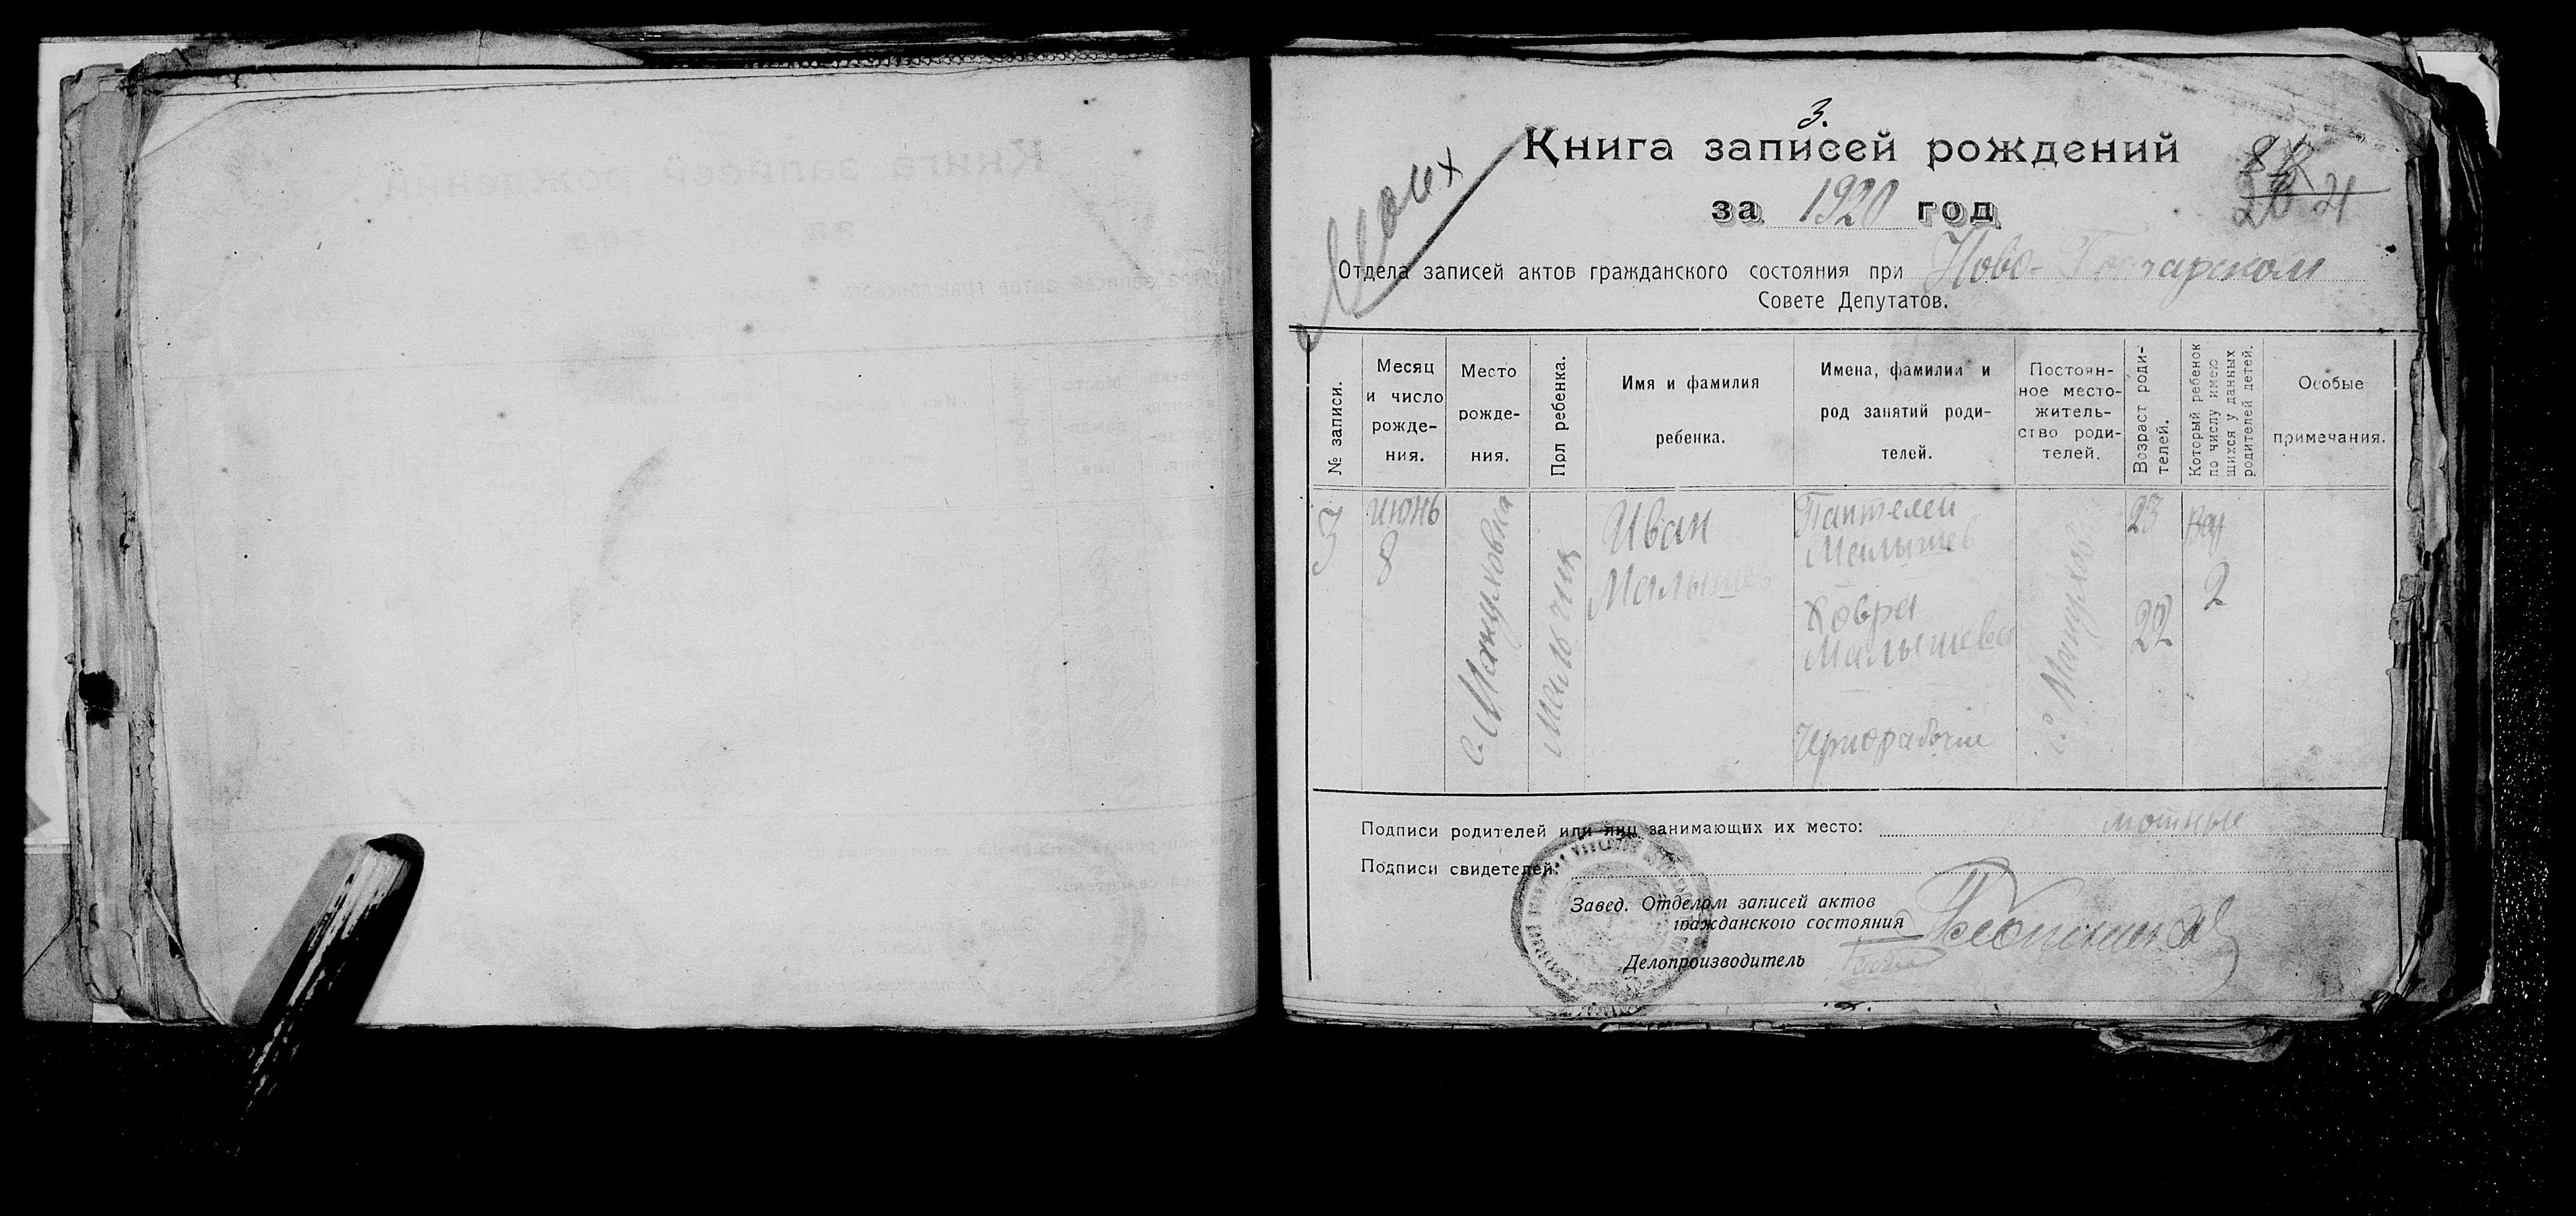 3.
Книга записей рождений
за 1920 год
21
Отдела записей актов гражданского состояния при Ново-Гончарском
Совете Депутатов.
№ записи.
Месяц
и число
рожде-
ния.
Место
рожде-
ния.
Пол ребенка.
Имя и фамилия
ребенка.
Имена, фамилии и
род занятий роди-
телей.
Постоян-
ное место-
житель-
ство роди-
телей.
Возраст роди-
телей.
Который ребенок
по числу имею
щихся у данных
родителей детей.
Особые
примечания.
3
июнь
8
с.
Мальчик
Иван
Малышев
Пантелей
Малышев
Ховря
Малышева
Чернорабочие
с.
23
22
2
Подписи родителей или лиц занимающих их место:
Подписи свидетелей:
Завед. Отделом записей актов
гражданского состояния
Делопроизводитель